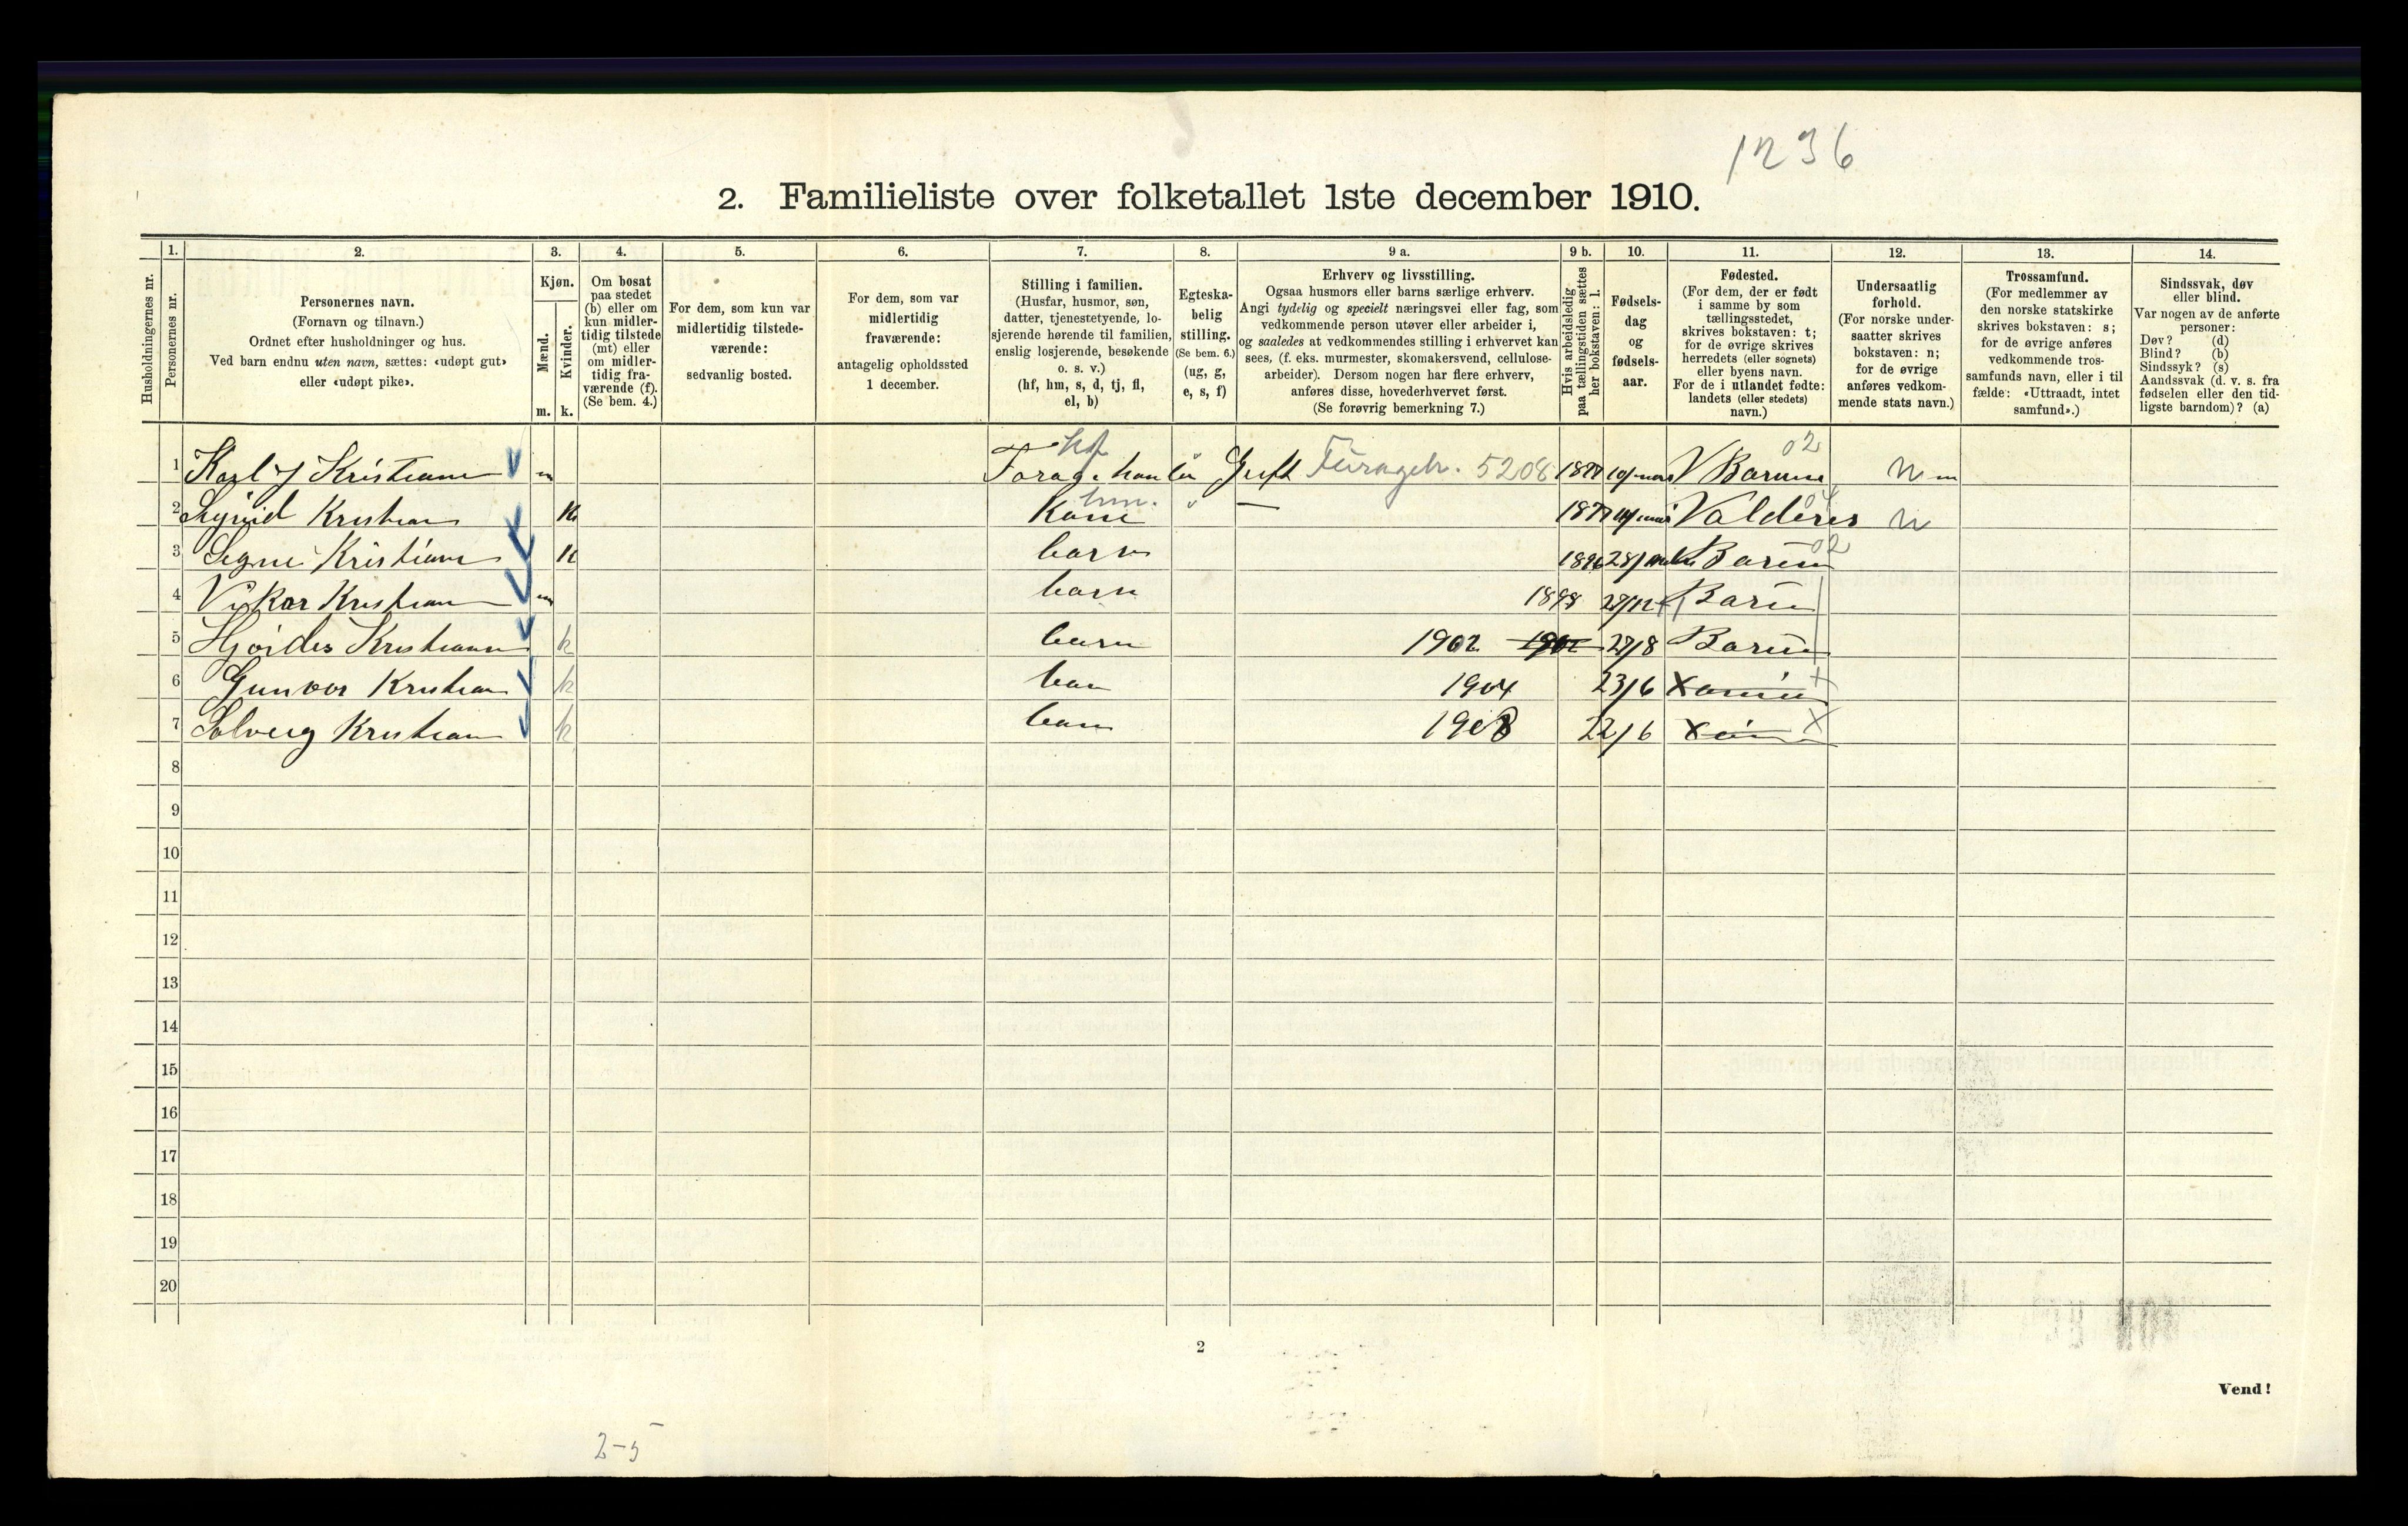 1236
2. Familieliste over folketallet 1ste december 1910.
Husholdningernes nr.
1.
Personernes nr.
2.
Personernes navn.
(Fornavn og tilnavn.)
Ordnet efter husholdninger og hus.
Ved barn endnu uten navn, sættes: «udøpt gut»
eller «udøpt pike».
3.
Kjøn.
Mænd.
Kvinder.
m. k.
4.
Om bosat
paa stedet
(b) eller om
kun midler-
tidig tilstede
(mt) eller
om midler-
tidig fra-
værende (f).
(Se bem. 4.)
5.
For dem, som kun var
midlertidig tilstede-
værende:
sedvanlig bosted.
6.
For dem, som var
midlertidig
fraværende:
antagelig opholdssted
1 december.
7.
Stilling i familien.
(Husfar, husmor, søn,
datter, tjenestetyende, lo-
sjerende hørende til familien,
enslig losjerende, besøkende
o. s. v.)
(hf, hm, s, d, tj, fl,
el, b)
8.
Egteska-
belig
stilling.
(Se bem. 6.)
(ug, g,
e, s, f)
9 a.
Erhverv og livsstilling.
Ogsaa husmors eller barns særlige erhverv.
Angi tydelig og specielt næringsvei eller fag, som
vedkommende person utøver eller arbeider i,
og saaledes at vedkommendes stilling i erhvervet kan
sees, (f. eks. murmester, skomakersvend, cellulose-
arbeider). Dersom nogen har flere erhverv,
anføres disse, hovederhvervet først.
(Se forøvrig bemerkning 7.)
9 b.
Hvis arbeidsledig
paa tællingstiden sættes
her bokstaven: l.
10.
Fødsels-
dag
og
fødsels-
aar.
11.
Fødested.
(For dem, der er født
i samme by som
tællingsstedet,
skrives bokstaven: t;
for de øvrige skrives
herredets (eller sognets)
eller byens navn.
For de i utlandet fødte:
landets (eller stedets)
navn.)
12.
Undersaatlig
forhold.
(For norske under-
saatter skrives
bokstaven: n;
for de øvrige
anføres vedkom-
mende stats navn.)
13.
Trossamfund.
(For medlemmer av
den norske statskirke
skrives bokstaven: s;
for de øvrige anføres
vedkommende tros-
samfunds navn, eller i til
fælde: «Uttraadt, intet
samfund».)
14.
Sindssvak, døv
eller blind.
Var nogen av de anførte
personer:
Døv? (d)
Blind? (b)
Sindssyk? (s)
Aandssvak (d. v. s. fra
fødselen eller den tid-
ligste barndom)? (a)
hf 02
1 Karl J Kristians m Gift 5208 V Barum n
hm. 04
2 Sigrid Kristian k Kone " — Valders n
02
3 Signe Kristians k barn 1896 Barum
4 Viktor Kristian m barn 1898 27/12 Barum
5 Hjördes Kristians k barn 1902 1902 27/8 Barum
6 Gunvor Kristian k barn 1904 23/6 X
7 Solveig Kristian k barn 1908 22/6 X
8
9
10
11
12
13
14
15
16
17
18
19
20
2
Vend!
2-5